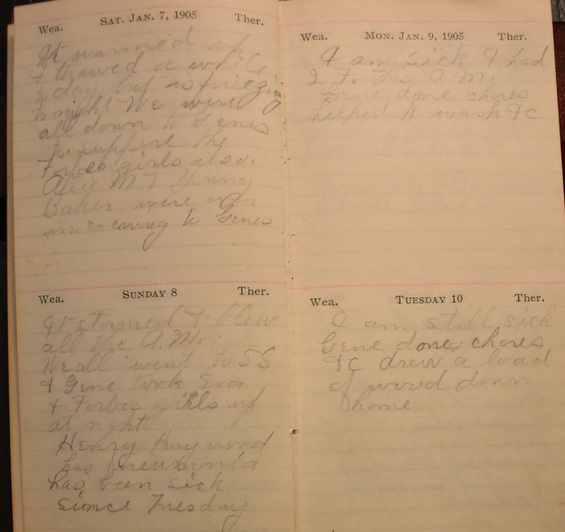 Wea. SAT. JAN. 7, 1905 Ther.
It warmed up
& thawed a while
today but is freezing
tonight We were
all down to Genes
to supper the
Forbes girls also.
Allie M & Young
Baker were over
in evening to Genes
Wea. SUNDAY 8 Ther.
It stormed & blew
all the A.M.
We all went to SS
& Gene took
& Forbes girls up
at night
Henry Haywood
has pneumonia
has been sick
since Tuesday
Wea. MON. JAN. 9, 1905 Ther.
I am sick I had
the A.M.
Gene done chores
helped wash &c
Wea. TUESDAY 10 Ther.
I am still sick
Gene done chores
&c drew a load
of wood down
home